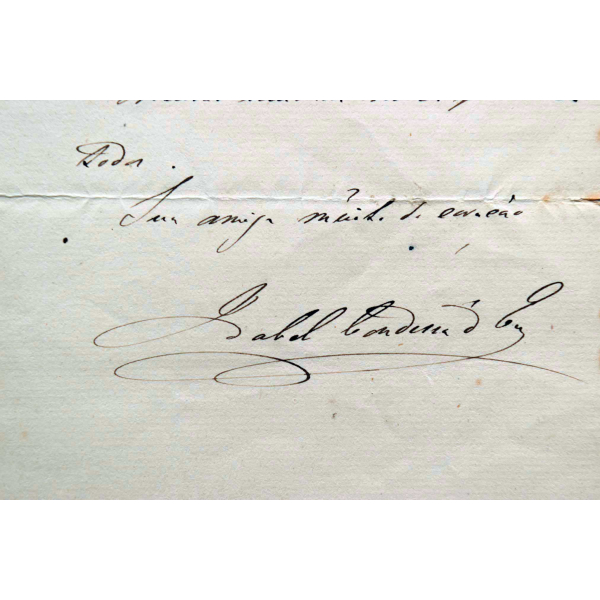 todos.
Sua amiga muito de coração
Isabel Condessa d'Eu